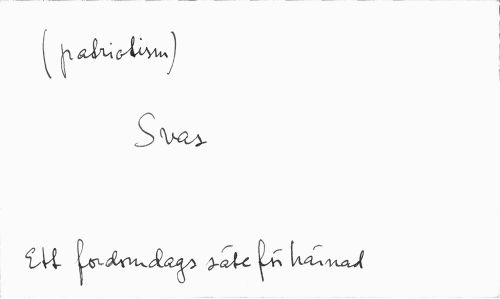 (patriotism)
Svas
Ett fordomdags säte för härnad